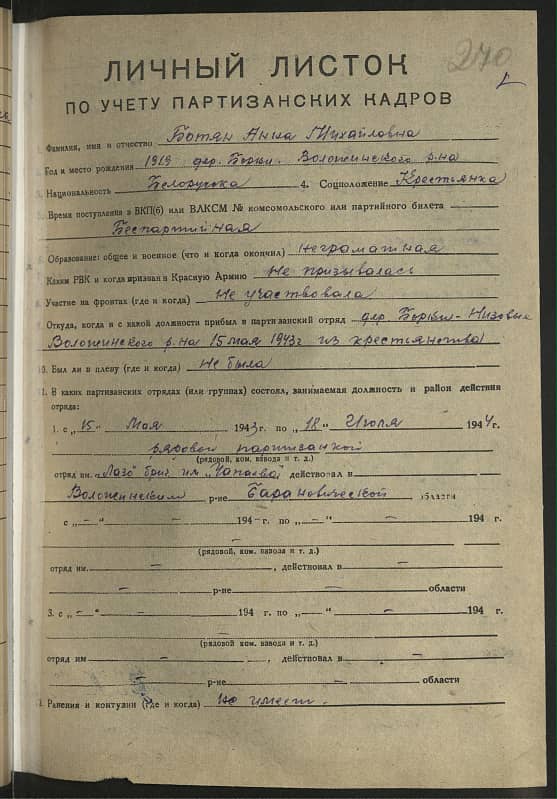 270
ЛИЧНЫЙ ЛИСТОК
ПО УЧЕТУ ПАРТИЗАНСКИХ КАДРОВ
Фамилия, имя и отчество Ботян Анна Михайловна
Год и место рождения 1919 дер. Борки. Воложинского р-на
Национальность Белорусска 4. Соцположение Крестьянка
Время поступления в ВКП(б) или ВЛКСМ № комсомольского или партийного билета
Беспартийная
Образование: общее и военное (что и когда окончил) неграматная
Каким РВК и когда призван в Красную Армию не призывалась
Участие на фронтах (где и когда) не участвовала
Откуда, когда и с какой должности прибыл в партизанский отряд дер. Борки-
Воложинского р-на 15 мая 1943г из крестьянства
10. Был ли в плену (где и когда) не была
1. В каких партизанских отрядах (или группах) состоял, занимаемая должность и район действия
отряда:
1. с „15" Мая 1943г. по „18" Июля 1944г.
рядовой партизанкой
(рядовой, ком. взвода и т. д.)
отряд им. "Лазо" бриг им. "Чапаева" действовал в
Воложинским р-не Барановической области
с „–" – 194–г. по „–" – 194 г.
–
(рядовой, ком. взвода и т. д.)
отряд им. –, действовал в –
– р-не – области
3. с „–" – 194 г. по „–" – 194 г.
(рядовой ком. взвода и т. д.)
отряд им –, действовал в –
– р-не – области
Ранения и контузии (где и когда) не имеет.